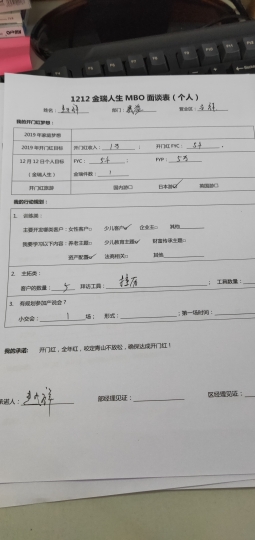 1212金瑞人生MBO面谈表（个人）
姓名： 部门： 营业区：
我的开门红梦想：
2019年家庭梦想
2019年开门红目标 开门红收入：1万； 开门红FYC：5千。
12月12日个人目标 FYC：5千； FYP：5万
（金瑞人生） 金瑞件数：1
开门红旅游 国内部□ 日本部☑ 韩国部□
我的行动规划：
1. 训练类：
主要开发哪类客户：女性客户□ 少儿客户☑ 企业主□ 其他
我要学习以下内容：养老主题□ 少儿教育主题☑ 财富传承主题□
资产配置☑ 法商相关□ 其他
2. 主拓类：
客户的数量：5 拜访工具： ；工具数量：
3. 有规划参加产说会？
小交会：1场； 形式： ；第一场时间：
我的承诺： 开门红，全年红，咬定青山不放松，确保达成开门红！
承诺人： 部经理见证： 区经理见证：